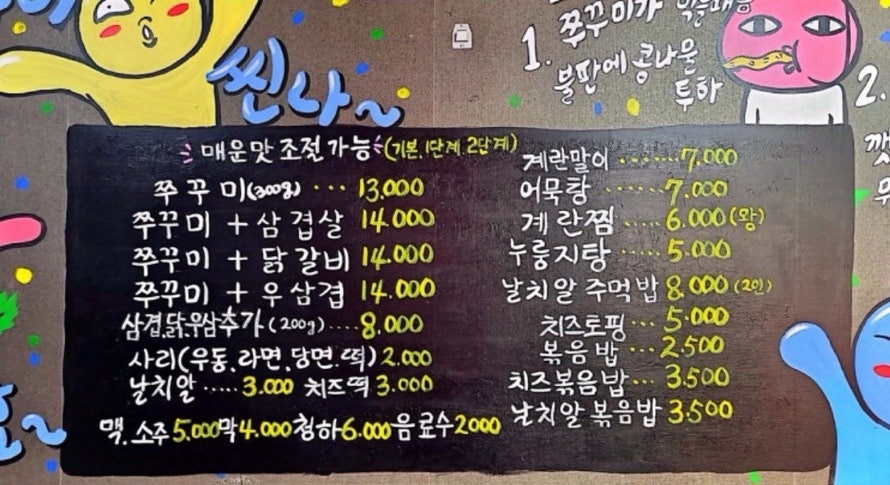 씬나~
1. 쭈꾸미가
불판에 콩나물
투하
2.
매운맛 조절가능 (기본.1단계.2단계)
쭈꾸미(300g) ··· 13.000
쭈꾸미 + 삼겹살 14.000
쭈꾸미 + 닭갈비 14.000
쭈꾸미 + 우삼겹 14.000
삼겹.닭.우삼추가(200g)....8.000
사리(우동.라면.당면.떡) 2.000
날치알 ····· 3.000 치즈떡 3.000
맥.소주5.000막4.000청하6.000음료수2000
계란말이 ······· 7.000
어묵탕 ······· 7.000
계란찜 ···· 6.000(왕)
누룽지탕 ···· 5.000
날치알 주먹밥 8.000(2인)
치즈토핑 ··· 5.000
볶음밥 ··· 2.500
치즈볶음밥 ··· 3.500
날치알 볶음밥 3.500